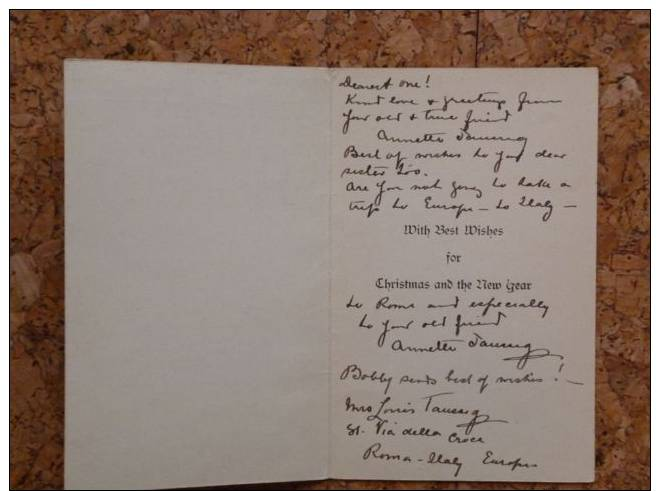 Dearest one!
Kind love & greetings from
your old & true friend
Annette Taussig
Best of wishes to your dear
sister too.
are you not going to take a
trip to Europe - to Italy -
With Best Wishes
for
Christmas and the New Year
to Rome and especially
to your old friend
Annette Taussig
Bobby sends best of wishes! -
Mrs Louis Taussig
Via della Croce
Roma - Italy Europe